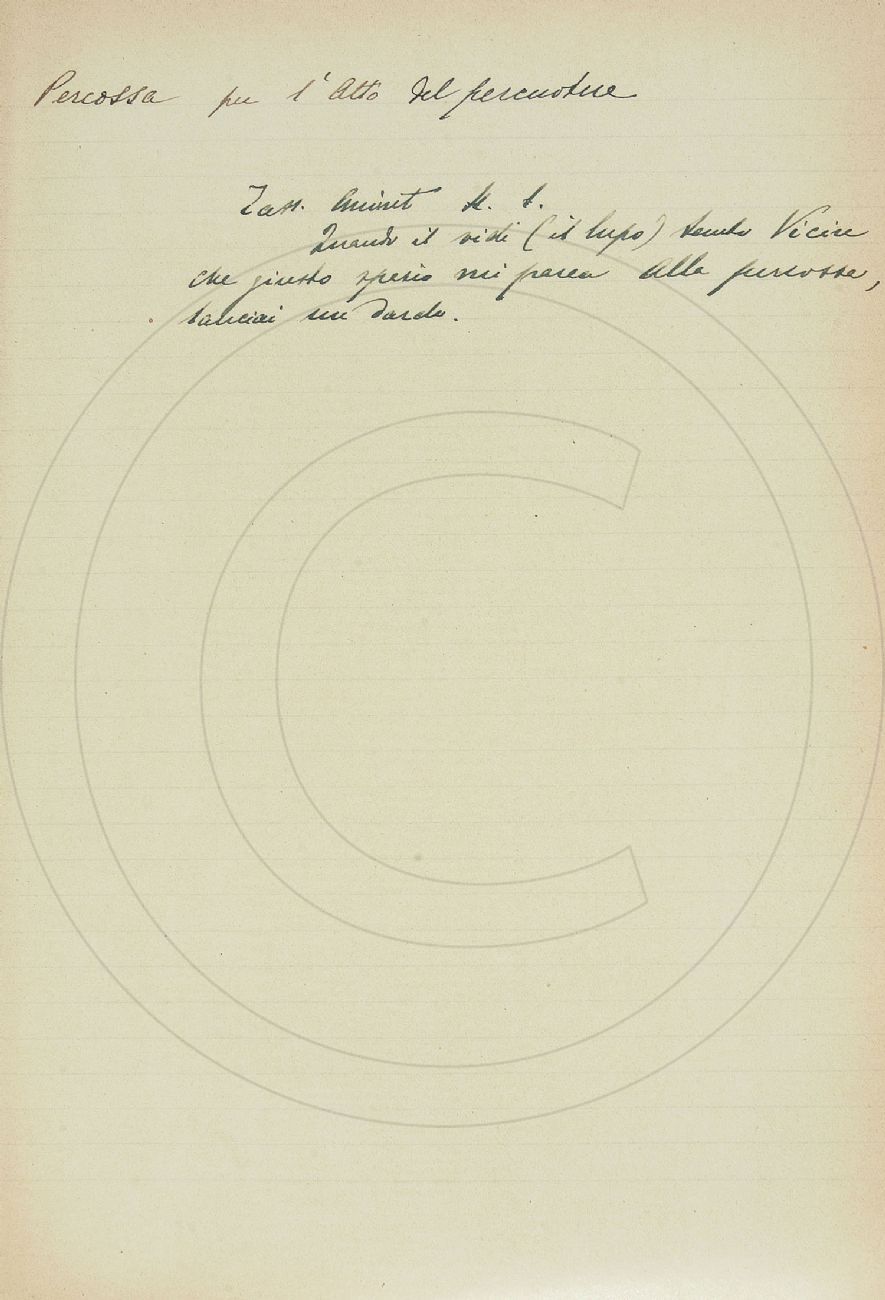 Percossa per l'Atto del percuotere
Tass. Amint
Quando il vidi (il lupo) tanto Vicin
che giusto spazio mi parea Alla percossa,
lanciai un dardo.